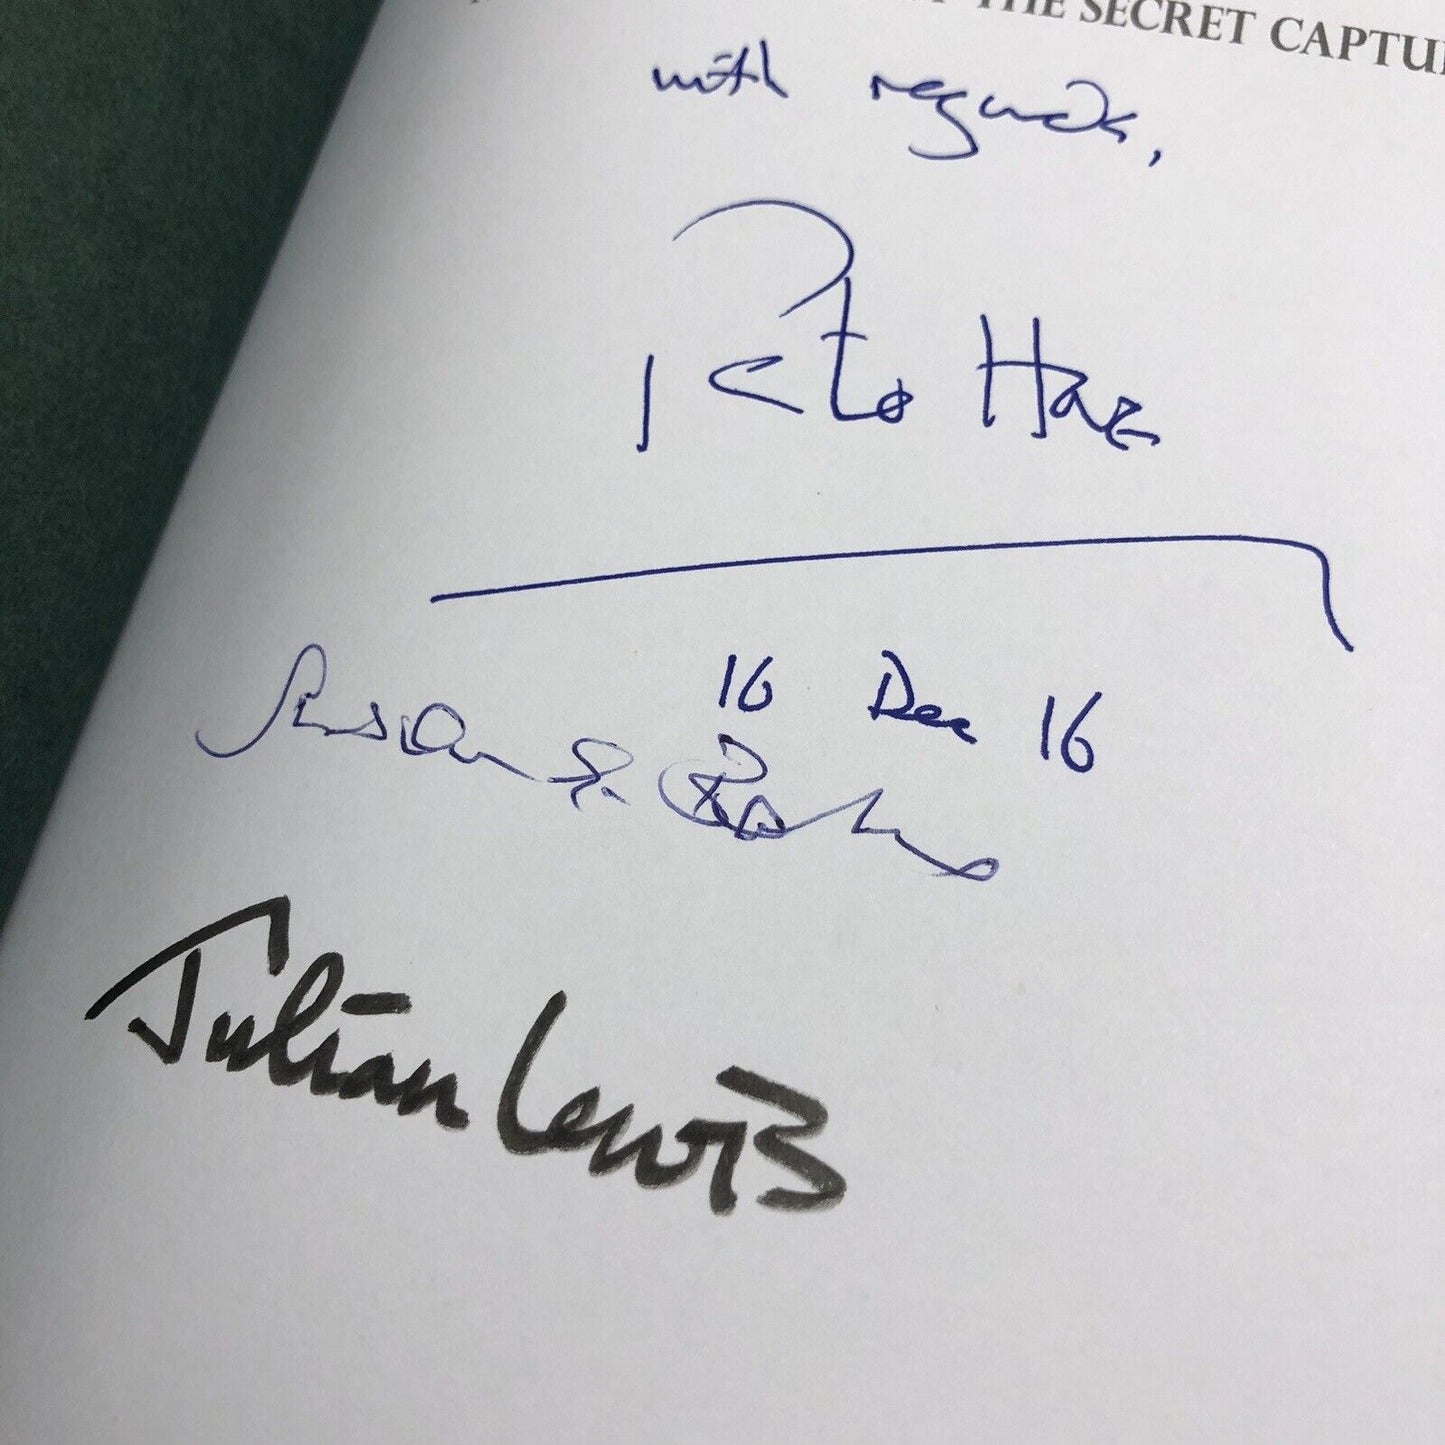 THE SECRET CAPTU
with regards,
Peter Hore
16 Dec 16
Julian Lewis